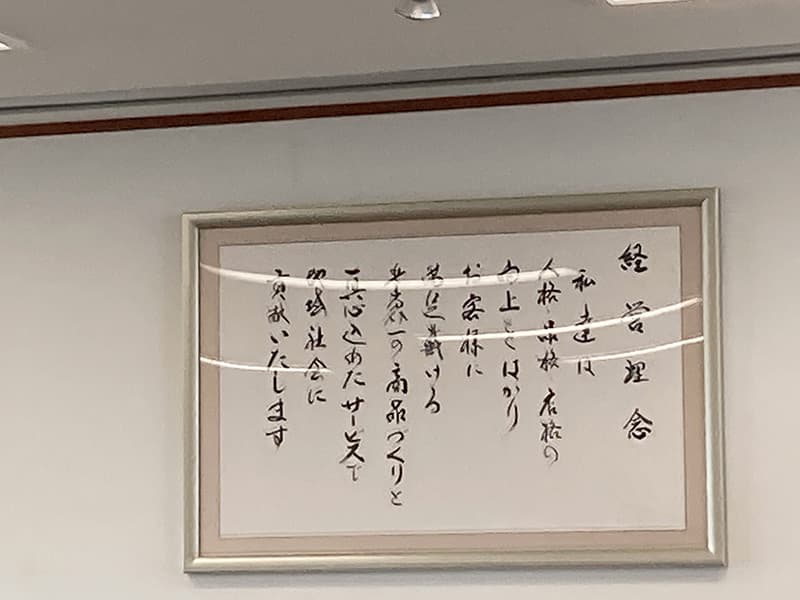 経営理念
私達は
人格・品格・店格の
向上をはかり
お客様に
満足戴ける
一の商品づくりと
真心込めたサービスで
地域社会に
貢献いたします